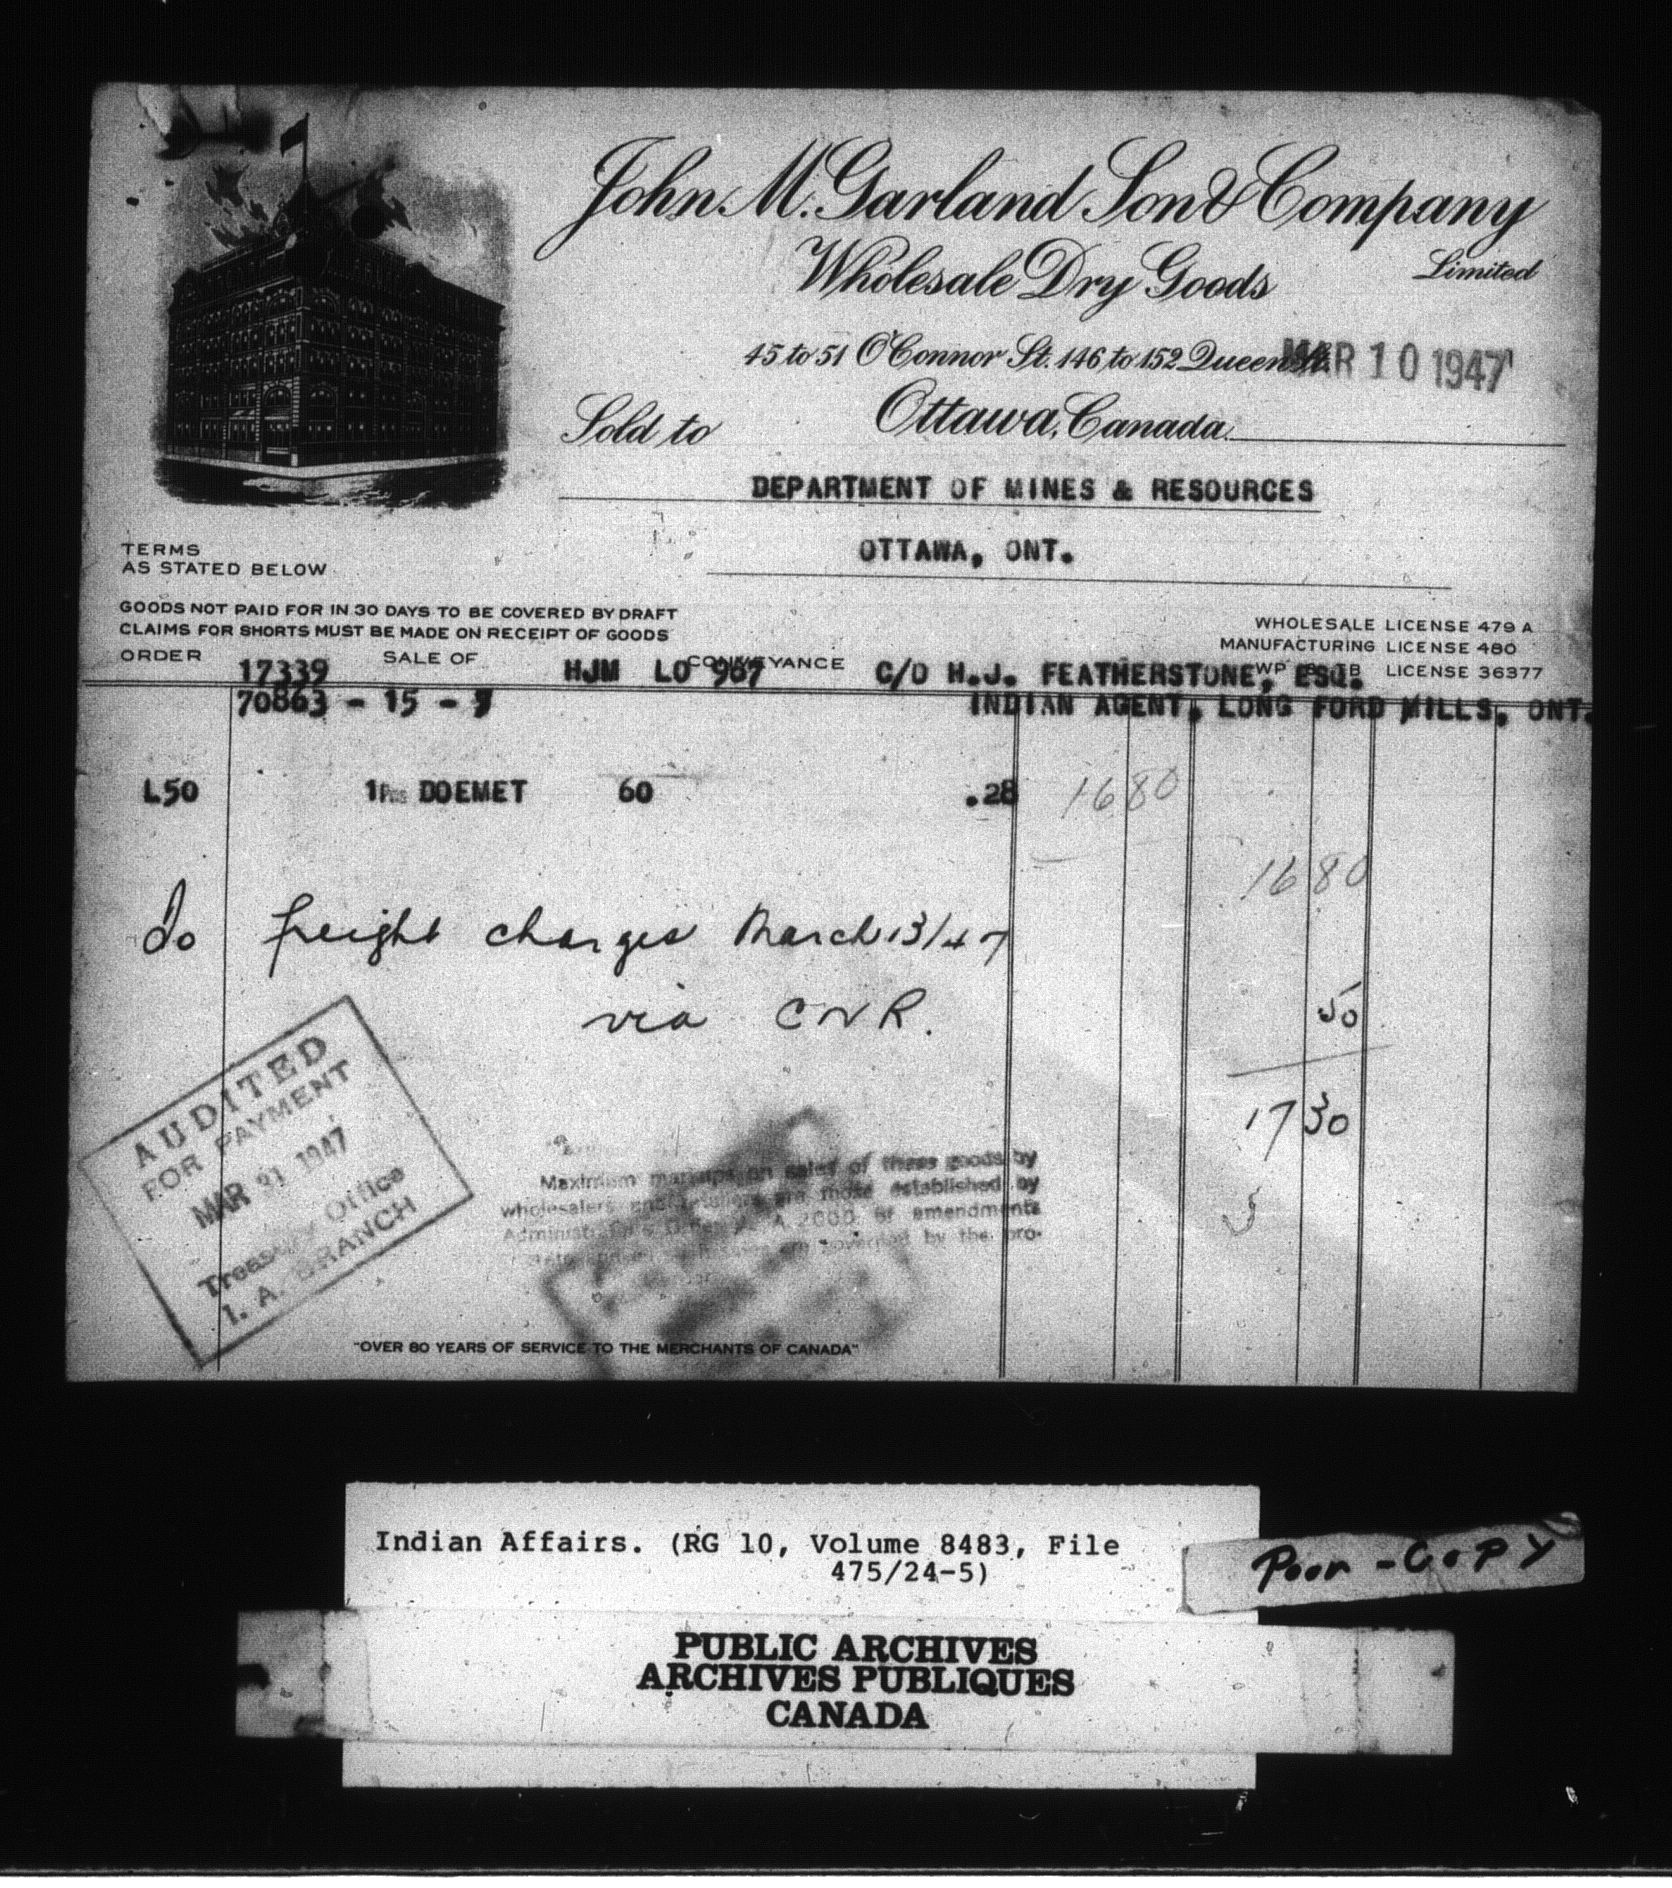 John M. Garland Son & Company
Limited
Wholesale Dry Goods
45 to 51 O'Connor St. 146 to 152 Queen St.
MAR 10 1947
Ottawa, Canada
Sold to
DEPARTMENT OF MINES & RESOURCES
OTTAWA, ONT.
TERMS
AS STATED BELOW
GOODS NOT PAID FOR IN 30 DAYS TO BE COVERED BY DRAFT
CLAIMS FOR SHORTS MUST BE MADE ON RECEIPT OF GOODS
WHOLESALE LICENSE 479 A
MANUFACTURING LICENSE 480
LICENSE 36377
ORDER 17339 SALE OF HJM LO 967 CONVEYANCE C/O H.J. FEATHERSTONE, ESQ.
70863 - 15 - INDIAN AGENT, LONG FORD MILLS, ONT.
L50 1 DOEMET 60 .28 16 80
16 80
Do freight charges March 13/47
via CNR.
50
17 30
AUDITED
FOR PAYMENT
MAR 1947
Treasury Office
I. A. BRANCH
Maximum markups on sales of these goods by
wholesalers are those established by
A 2000 or amendments
governed by the pro-
"OVER 80 YEARS OF SERVICE TO THE MERCHANTS OF CANADA"
Indian Affairs. (RG 10, Volume 8483, File
475/24-5)
Poor-Copy
PUBLIC ARCHIVES
ARCHIVES PUBLIQUES
CANADA